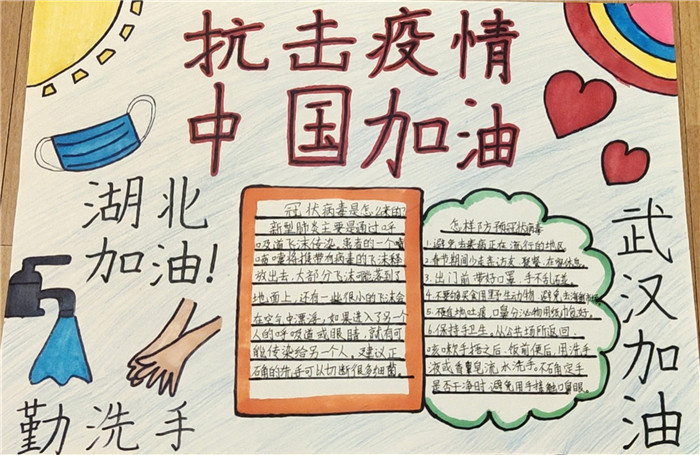 抗击疫情
中国加油
湖北
加油!
勤洗手
冠状病毒是怎么来的?
新型肺炎主要是通过呼
吸道飞沫传染,患者的一个喷
嚏将携带有病毒的飞沫释
放出去,大部分飞沫能落到了
地面上,还有一些很小的飞沫会
在空气中漂浮,如果进入了另一个
人的呼吸道或眼睛,就有可
能传染给另一个人。建议正
确的洗手可以切断很多细菌。
怎样预防冠状病毒
1.避免去疾病正在流行的地区
2.春节期间少走亲访友,聚餐,在家休息。
3.出门前带好口罩,手不乱碰。
4.不要购买食用野生动物,避免去海鲜
5.不随地吐痰,口鼻分泌物用纸巾包好。
6.保持手卫生。从公共场所返回、
咳嗽手捂之后、饭前便后,用洗手
液或香皂流水洗手。不确定手
是否干净时,避免用手接触口鼻眼
武汉加油